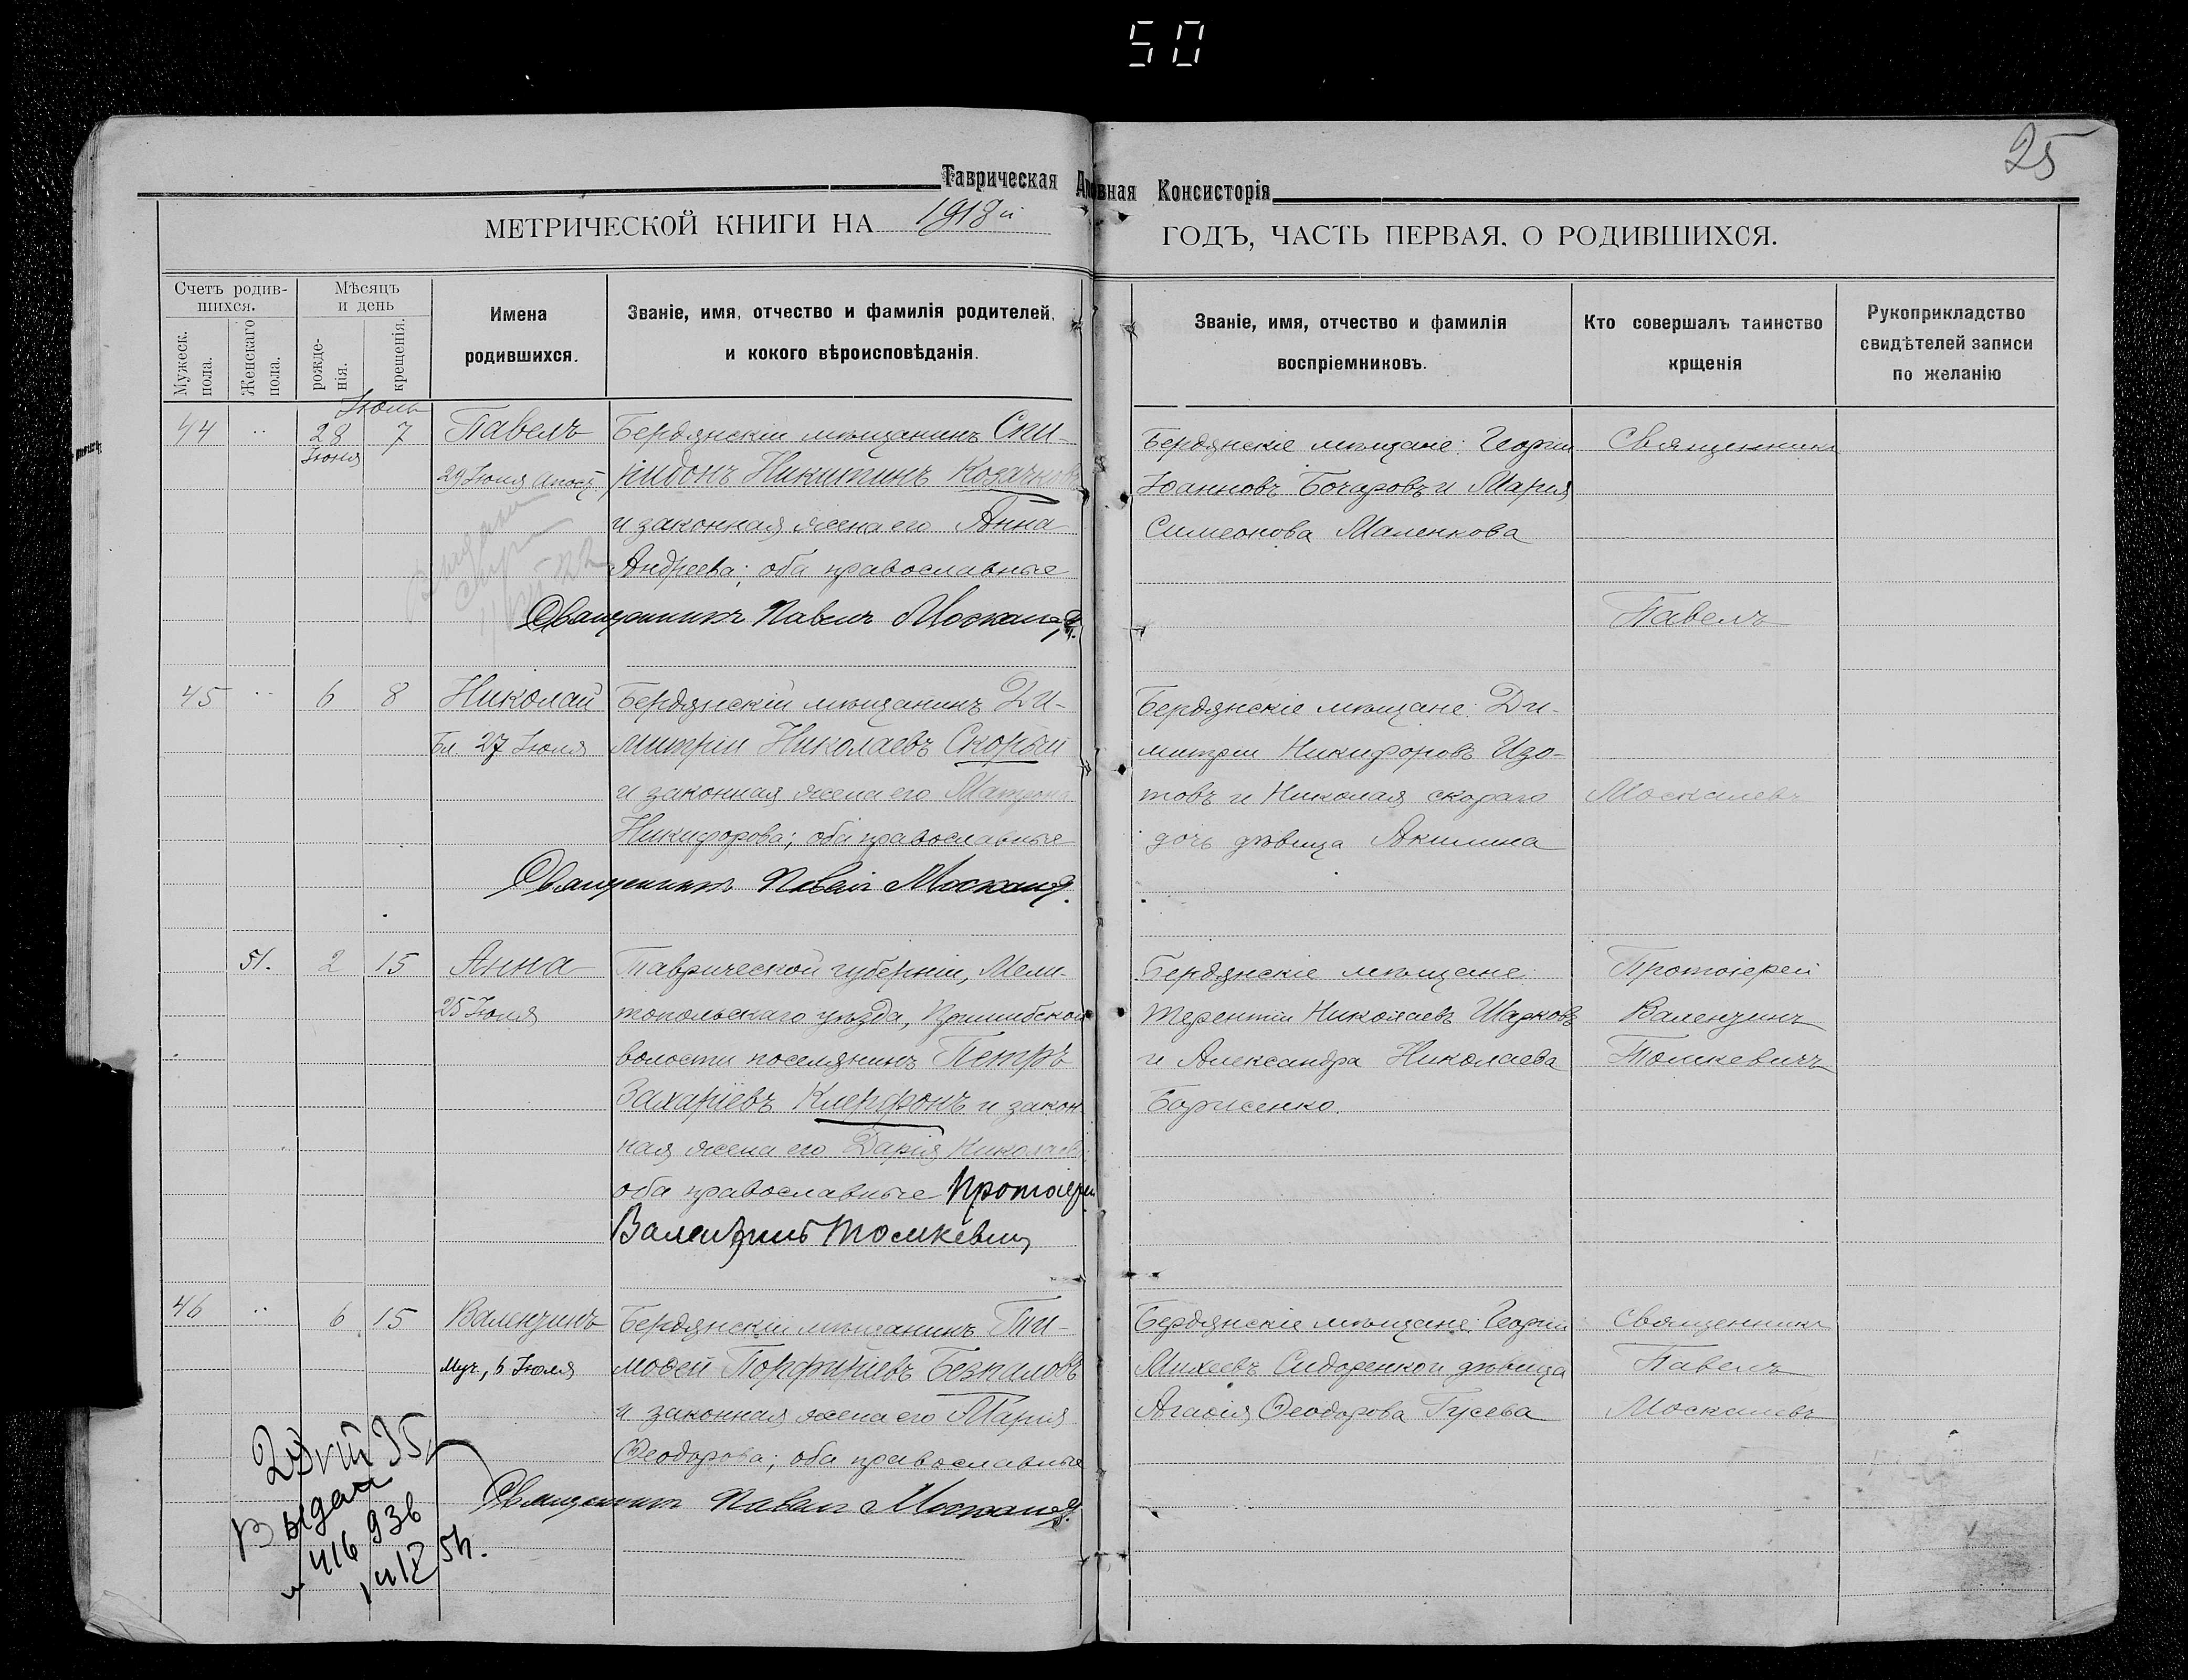 50
25
Таврическая Духовная Консисторія
МЕТРИЧЕСКОЙ КНИГИ НА 1918й ГОДЪ, ЧАСТЬ ПЕРВАЯ, О РОДИВШИХСЯ.
Счетъ родив-
шихся.
Мужеск. пола.
Женскаго пола.
Мѣсяцъ
и день
рожде-
нія.
крещенія.
Имена
родившихся.
Званіе, имя, отчество и фамилія родителей,
и кокого вѣроисповѣданія.
Званіе, имя, отчество и фамилія
воспріемниковъ.
Кто совершалъ таинство
крщенія
Рукоприкладство
свидѣтелей записи
по желанію
Іюль
44 28 7 Павелъ Бердянскій мѣщанинъ Спи-
Іюня
29 Іюня Апост. ридонъ Никитинъ Козачковъ
и законная жена его Анна
Андреева; оба православные
Священникъ Павелъ Москалевъ
Бердянскіе мѣщане: Георгій
Іоанновъ Бочаровъ и Марія
Симеонова Маленкова
Священникъ
Павелъ
Москалевъ
45 6 8 Николай Бердянскій мѣщанинъ Ди-
Бл. 27 Іюля митрій Николаевъ Скорый
и законная жена его Матрона
Никифорова; оба православные
Священникъ Павелъ Москалевъ
Бердянскіе мѣщане: Ди-
митрій Никифоровъ Изо-
товъ и Николая Скораго
дочь дѣвица Акилина
51. 2 15 Анна Таврической губерніи, Мели-
25 Іюля топольскаго уѣзда, Пришибской
волости поселянинъ Петръ
Захаріевъ и закон-
ная жена его Дарія Николаева
оба православные Протоіерей
Валентинъ Томкевич
Бердянскіе мѣщане:
Терентій Николаевъ Шарковъ
и Александра Николаева
Борисенко.
Протоіерей
Валентинъ
Томкевичъ
46 6 15 Валентинъ Бердянскій мѣщанинъ Ти-
Муч., 6 Іюля моѳей Порфиріевъ Безпаловъ
и законная жена его Марія
Ѳеодорова; оба православные
Священникъ Павелъ Москалевъ
Бердянскіе мѣщане: Георгій
Михеевъ Сидоренко и дѣвица
Агаѳія Ѳеодорова Гусева
Священникъ
Павелъ
Москалевъ
Выдан